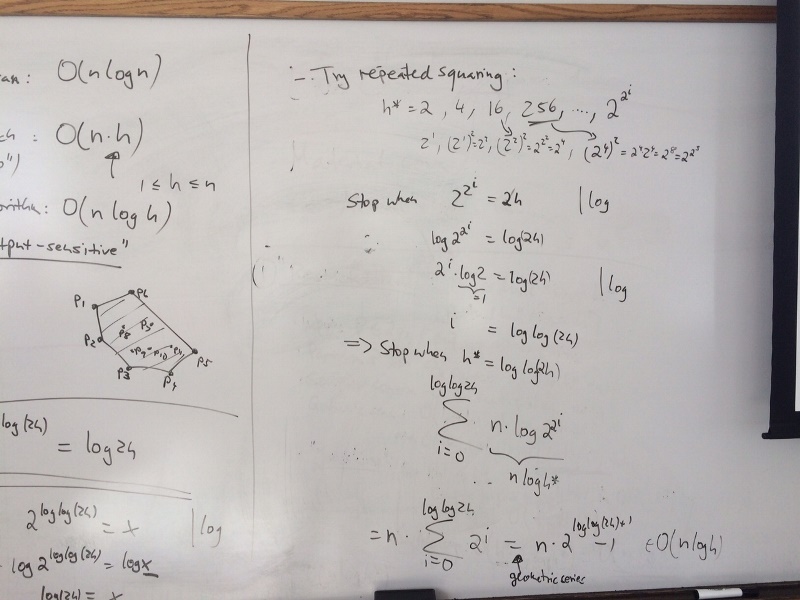 an: O(n log n)
: O(n·h)
1 ≤ h ≤ n
: O(n log h)
tput-sensitive"
P1 P6
P8 P3
P2 P9 P10 P5
P3 P4
log(2h) = log 2h
2^{log log(2h)} = x | log
log 2^{log log(2h)} = log x
log(2h) = x
- Try repeated squaring :
h* = 2 , 4 , 16 , 256 , ..., 2^{2^i}
2^1, (2^1)^2 = 2^2, (2^2)^2 = 2^{2^2} = 2^4, (2^4)^2 = 2^4 2^4 = 2^8 = 2^{2^3}
Stop when 2^{2^i} = 2h | log
log 2^{2^i} = log(2h)
2^i · log 2 = log(2h) | log
=1
i = log log (2h)
=> Stop when h* = log log(2h)
log log 2h
∑ n · log 2^{2^i}
i=0
n log h*
log log 2h
= n · ∑ 2^i = n · 2^{log log(2h)+1} -1 ∈ O(n log h)
i=0
geometric series